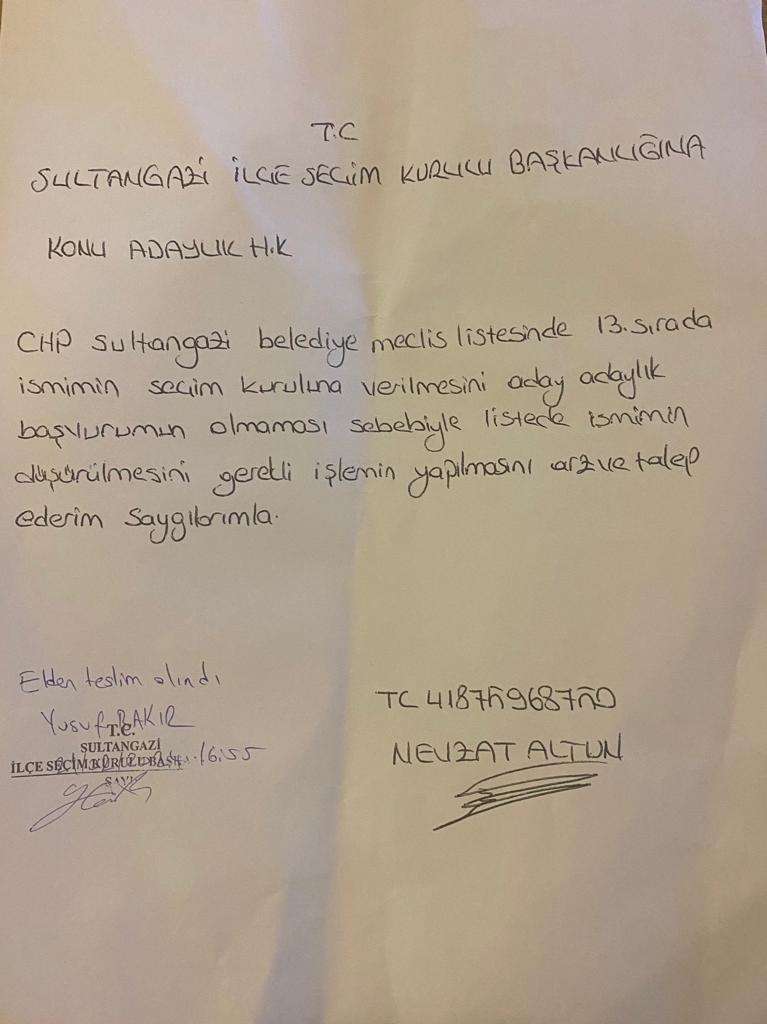 T.C
SULTANGAZİ İLÇE SEÇİM KURULU BAŞKANLIĞINA
KONU ADAYLIK H.K
CHP Sultangazi belediye meclis listesinde 13.sırada
ismimin seçim kuruluna verilmesini aday adaylık
başvurumun olmaması sebebiyle listede ismimin
düşürülmesini gerekli işlemin yapılmasını arz ve talep
ederim Saygılarımla.
Elden teslim alındı
Yusuf BAKIR
T.C.
SULTANGAZİ
İLÇE SEÇİM KURULU BAŞK. 16:55
SAYI
TC
NEVZAT ALTUN